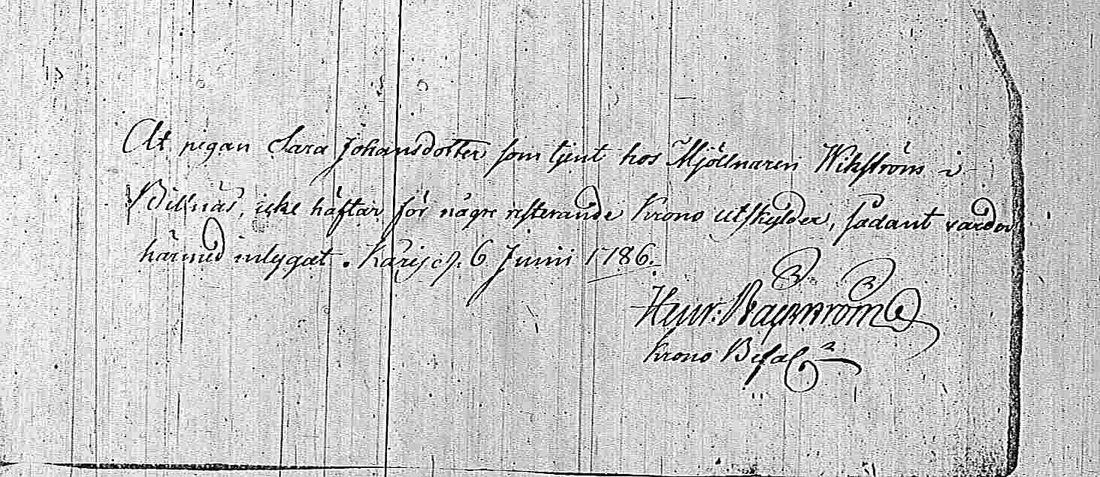 At pigan Sara Johansdotter som tjent hos Mjöllnaren Wikström i
Billnäs, icke häftar för någre resterande Krono utskylder, sådant varder
härmed intygat. Karis d. 6 Junii 1786.
Henr:
Krono Befal